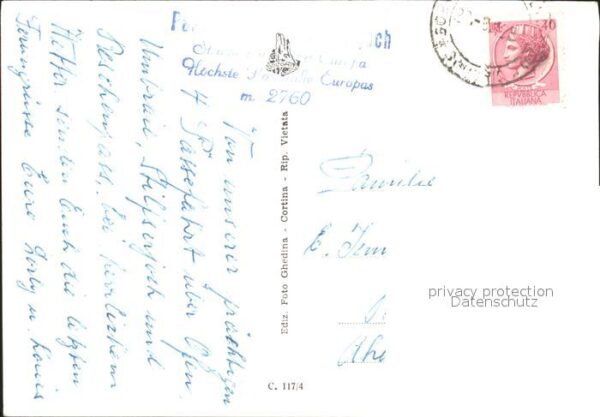 Höchste Europas
m. 2760
40
REPVBBLICA
ITALIANA
Von unserer prächtigen
4 Pässefahrt über Ofen,
Umbrail, Stilfserjoch und
Reschenpass, bei herrlichem
Wetter senden Euch die letzten
Feriengrüsse Eure Dorly u. Louis
Ediz. Foto Ghedina - Cortina - Rip. Vietata
Familie
E.
privacy protection
Datenschutz
C. 117/4